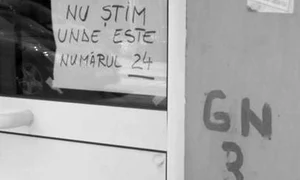 NU ȘTIM
UNDE ESTE
NUMĂRUL 24
GN
3